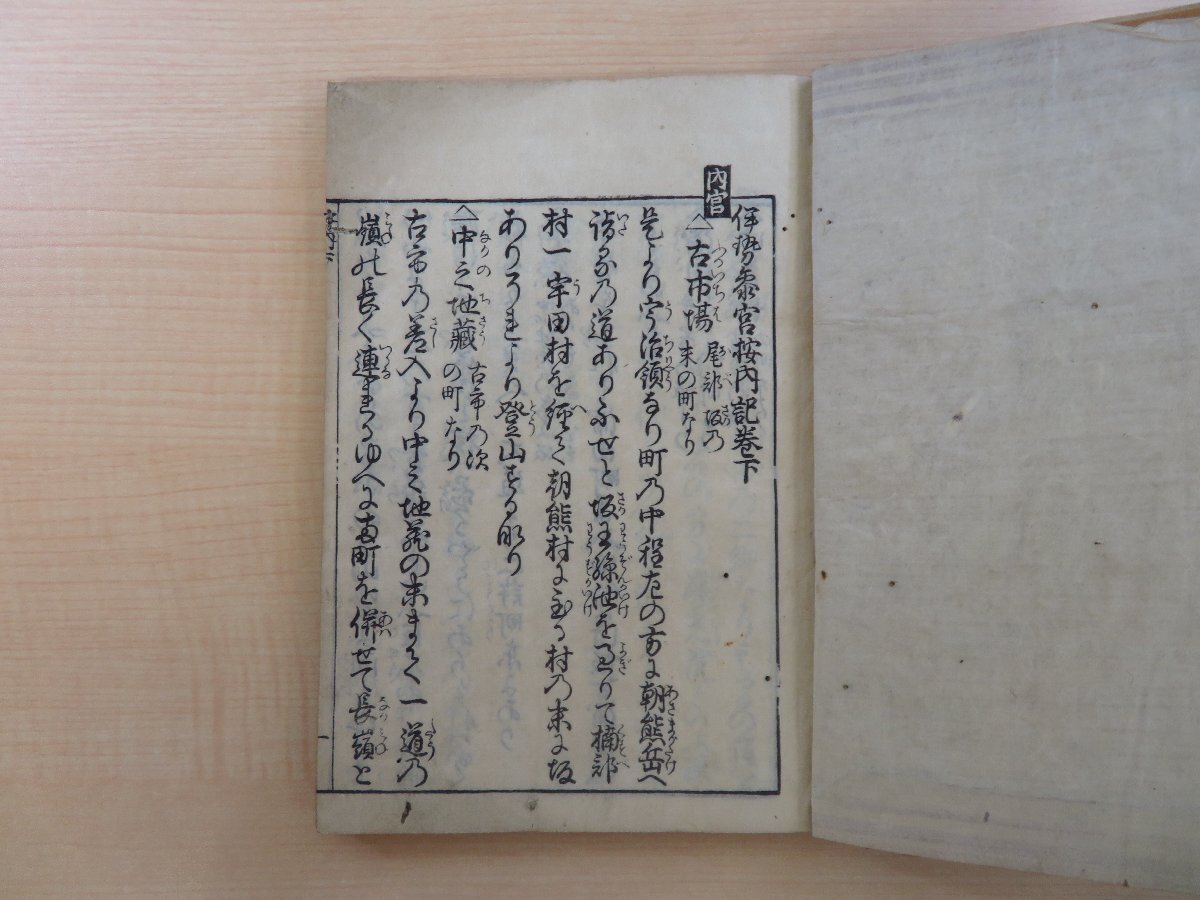 内宮
伊勢参宮按内記巻下
古市場 尾部坂乃
末の町なり
是より宇治領なり町乃中程左の方に朝熊岳へ
詣る乃道あり不世と坂王孫池を過りて楠部
村一宇田村を経て朝熊村に至る村乃末に坂
ありそれより登山する所り
中之地蔵 古市乃次
の町なり
古市乃差入より中之地蔵の末まて一道乃
嶺の長く連れるゆへに両町を併せて長嶺と